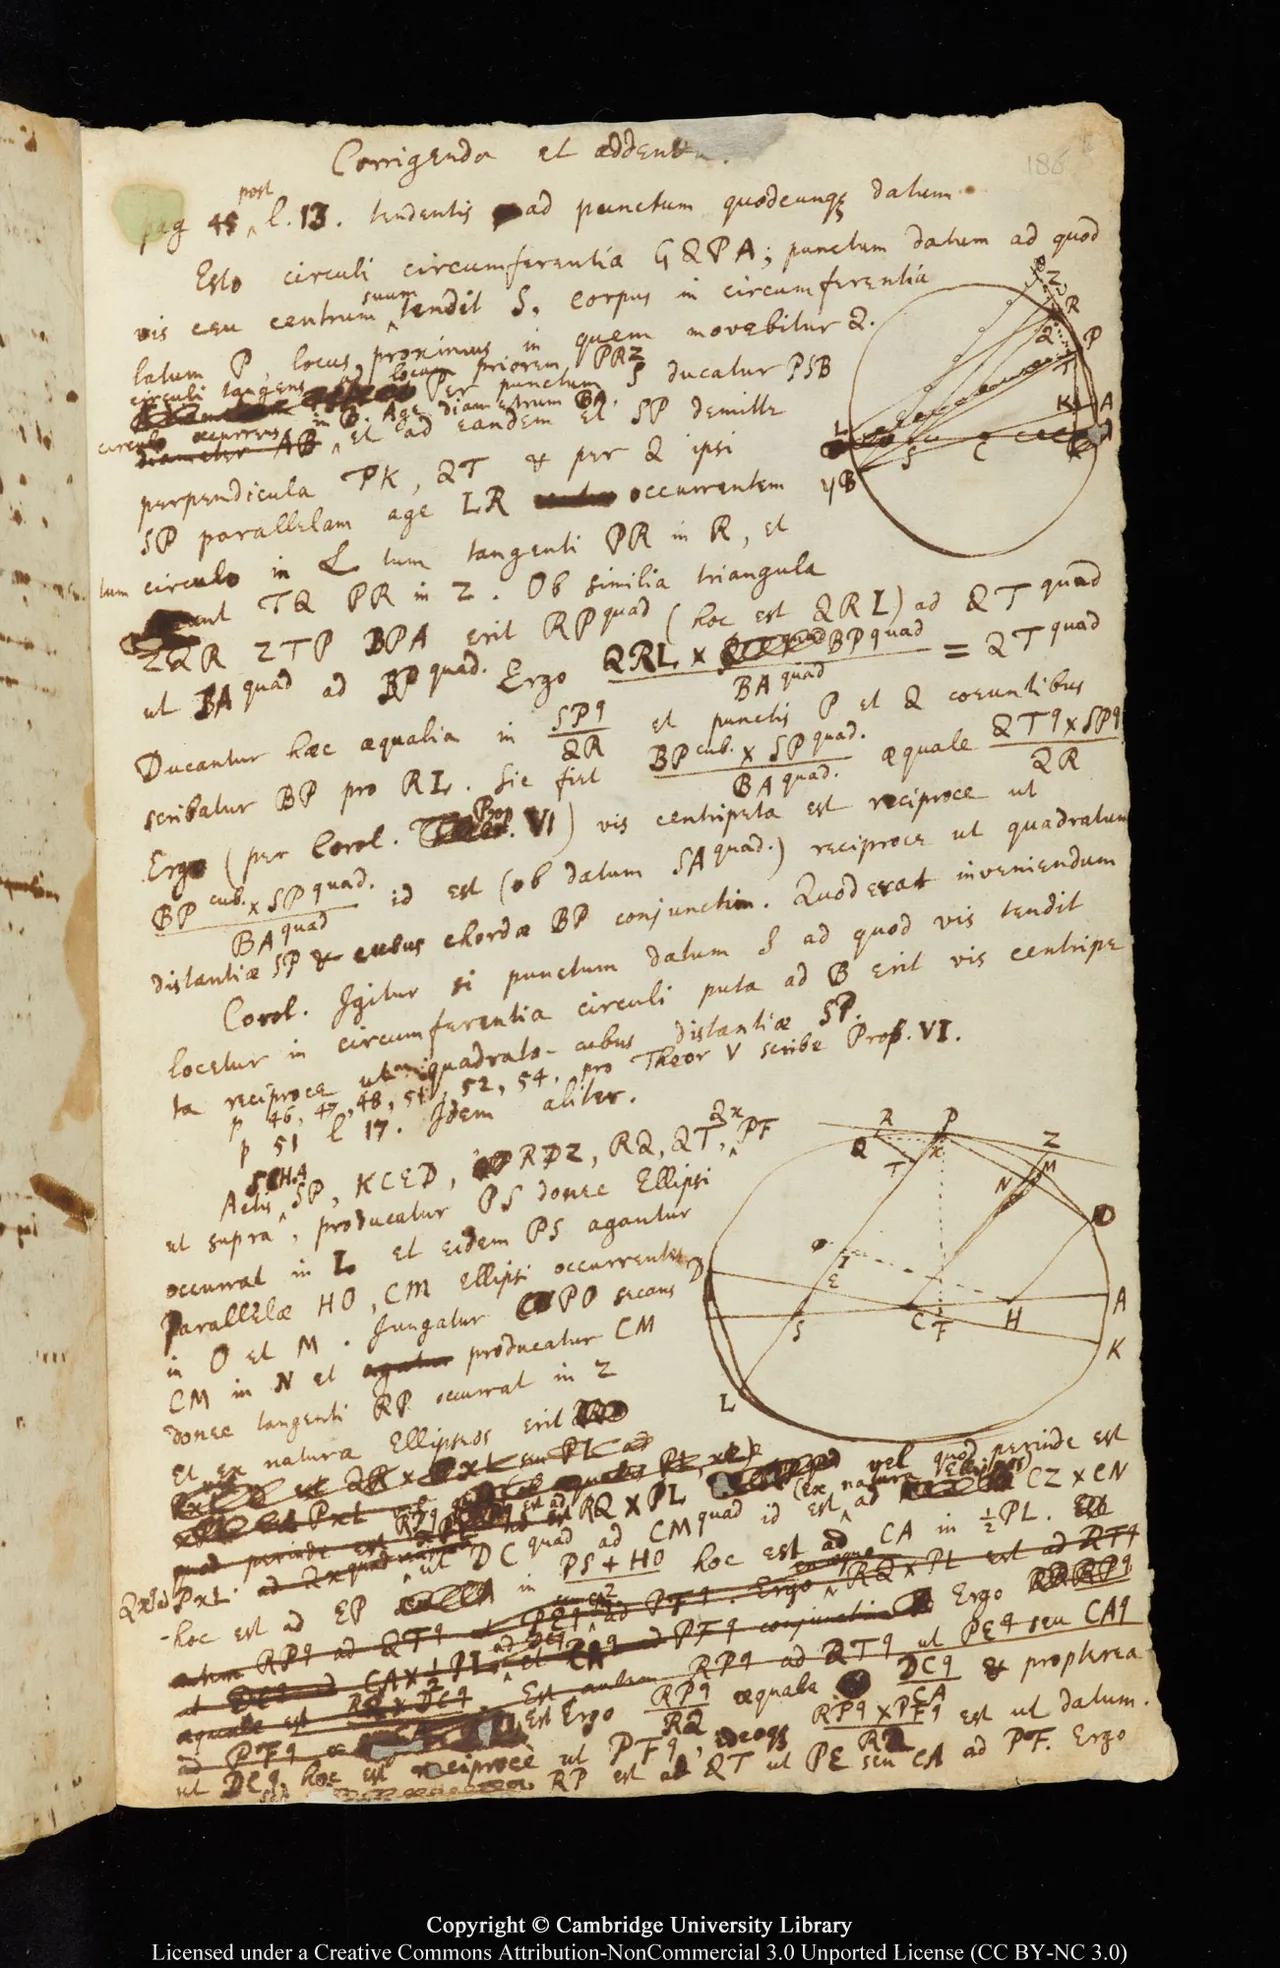 Corrigenda et addenda.
186
pag 45 post l. 13. tendentis ad punctum quodcunq datum
Esto circuli circumferentia GQPA; punctum datum ad quod
vis ceu centrum suum tendit S, corpus in circumferentia
latum P, locus proximus in quem movebitur Q.
circuli tangens ad locum priorem PRZ
Per punctum S ducatur PSB
circulo occurrens in B. Age diametrum BA.
diameter AB et ad eandem et SP demitte
perpendicula PK, QT & per Q ipsi
SP parallelam age LR occurrentem
tum circulo in L tum tangenti PR in R, et
TQ PR in Z. Ob similia triangula
ZQR ZTP BPA erit RP quad (hoc est QRL) ad QT quad
ut BA quad ad BP quad. Ergo QRL × BP quad / BA quad = QT quad
Ducantur hæc æqualia in SPq / QR et punctis P et Q coeuntibus
scribatur BP pro RL. Sic fiet BP cub. × SP quad. / BA quad. æquale QTq × SPq / QR
Ergo (per Corol. Prop. VI) vis centripeta est reciproce ut
BP cub. × SP quad. / BA quad id est (ob datum SA quad.) reciproce ut quadratum
distantiæ SP & cubus chordæ BP conjunctim. Quod erat inveniendum
Corol. Igitur si punctum datum S ad quod vis tendit
locetur in circumferentia circuli puta ad B erit vis centripe
ta reciproce ut quadrato-cubus distantiæ SP.
p 46, 47, 48, 51, 52, 54, pro Theor V scribe Prop. VI.
p 51 l 17. Idem aliter.
Actis SCHA SP, KCED, RPZ, RQ, QT, Qx PF
ut supra, producatur PS donec Ellipsi
occurrat in L et eidem PS agantur
Parallelæ HO, CM Ellipsi occurrentes
in O et M. Jungatur PO secans
CM in N et agatur producatur CM
donec tangenti RP occurrat in Z
Et ex natura Ellipseos erit
vel quod perinde est
quod perinde est RQ × PL (ex natura Ellipseos)
QxLad PxL. ut DC quad ad CM quad id est ad CZ × CN
hoc est ad EP in PS + HO / 2 hoc est ad CA in ½PL.
autem RPq ad QTq ut PEq ad PFq. Ergo ex æquo RQ × PL est ad QTq
ut DCq ad CA × ½PL et CAq ad PFq conjunctim Ergo
æquale est Est autem RPq ad QTq ut PEq seu CAq
ad PFq Est Ergo RPq / RQ æquale DCq / CA & propterea
ut DCq, hoc est reciproce ut PFq, ideoq RPq × PFq / RQ est ut datum.
RP est ad QT ut PE seu CA ad PF. Ergo
Z
R
Q
P
T
K
A
L
S
C
B
R
P
Z
Q
T
x
M
N
O
I
E
D
S
C
F
H
A
K
L
Copyright © Cambridge University Library
Licensed under a Creative Commons Attribution-NonCommercial 3.0 Unported License (CC BY-NC 3.0)